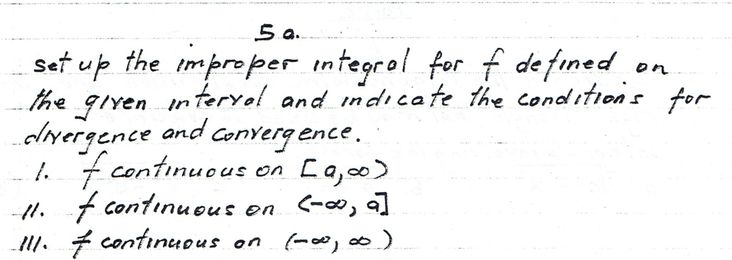 5a.
set up the improper integral for f defined on
the given interval and indicate the conditions for
divergence and convergence.
I. f continuous on [a,∞)
II. f continuous on (-∞, a]
III. f continuous on (-∞, ∞)